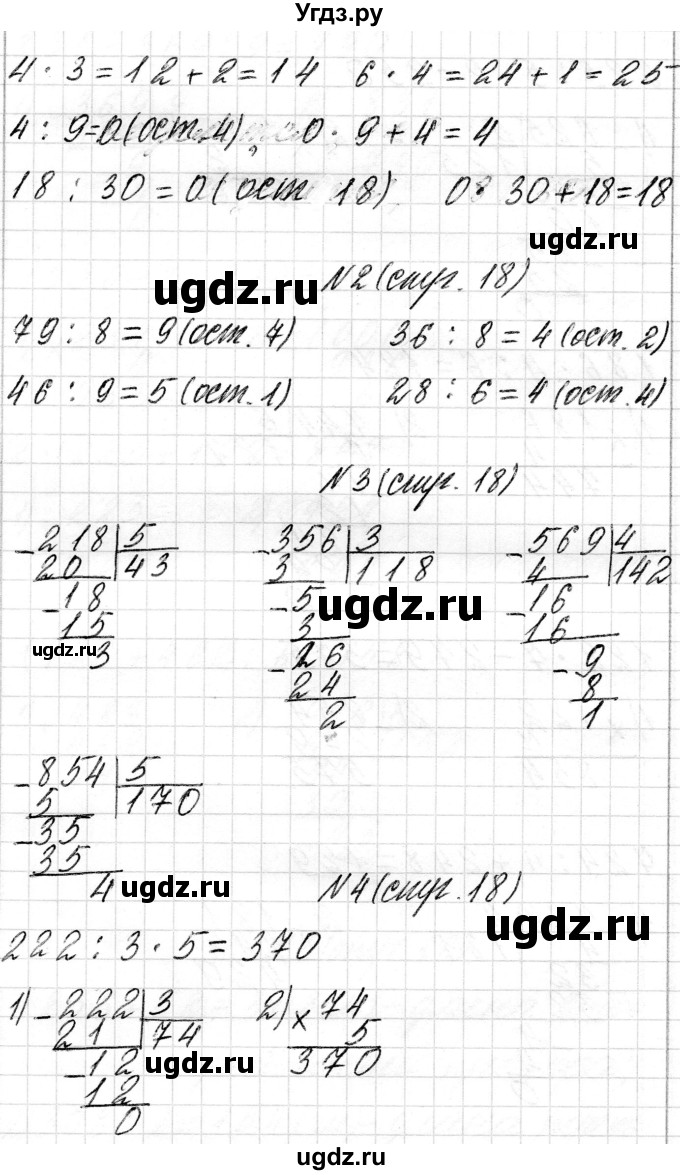 Угдз.ру
4 · 3 = 12 + 2 = 14 6 · 4 = 24 + 1 = 25
4 : 9 = 0 (ост. 4), 0 · 9 + 4 = 4
18 : 30 = 0 (ост 18) 0 · 30 + 18 = 18
ugdz.ru
ugdz.ru
N2 (стр. 18)
79 : 8 = 9 (ост. 7) 36 : 8 = 4 (ост. 2)
ugdz.ru
46 : 9 = 5 (ост. 1) 28 : 6 = 4 (ост. 4)
N3 (стр. 18)
- 218 | 5 - 356 | 3 - 569 | 4
20 43 3 118 4 142
- 18 - 5 - 16
ugdz.ru
15 3 16
ugdz.ru
ugdz.ru
3 - 26 - 9
24 8
2 1
- 854 | 5
5 170
- 35
35
4
ugdz.ru
N4 (стр. 18)
ugdz.ru
222 : 3 · 5 = 370
1) - 222 | 3 2) × 74
21 74 5
- 12 370
ugdz.ru
ugdz.ru
12
0
ugdz.ru